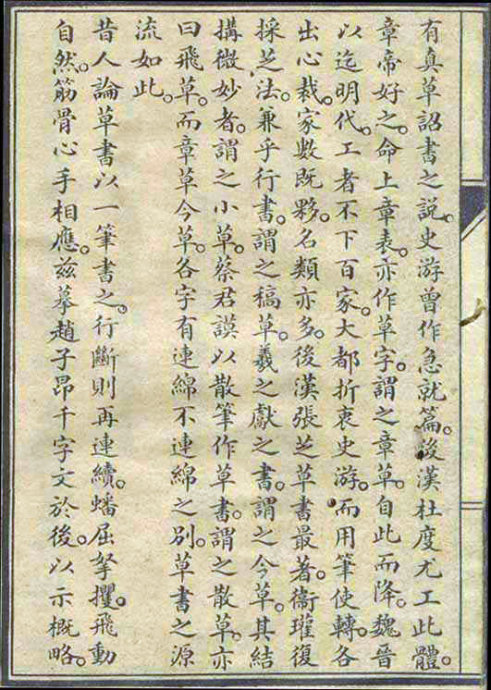 有真草詔書之說。史游曾作急就篇。後漢杜度尤工此體。
章帝好之。命上章表。亦作草字。謂之章草。自此而降。魏晉
以迄明代。工者不下百家。大都折衷史游。而用筆使轉。各
出心裁。家數既夥。名類亦多。後漢張芝草書最著。衞瓘復
採芝法。兼乎行書。謂之稿草。羲之獻之書。謂之今草。其結
搆微妙者。謂之小草。蔡君謨以散筆作草書。謂之散草。亦
曰飛草。而章草今草。各字有連綿不連綿之別。草書之源
流如此。
昔人論草書以一筆書之。行斷則再連續。蟠屈拏攫。飛動
自然。筋骨心手相應。茲摹趙子昂千字文於後。以示概略。